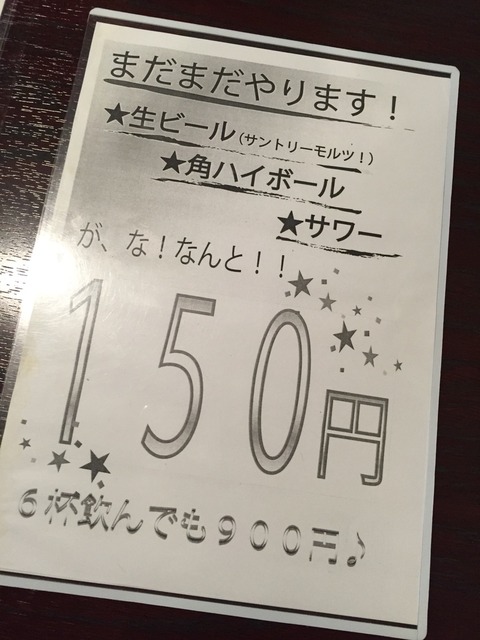 まだまだやります！
★生ビール（サントリーモルツ！）
★角ハイボール
★サワー
が、な！なんと！！
１５０円
６杯飲んでも９００円♪